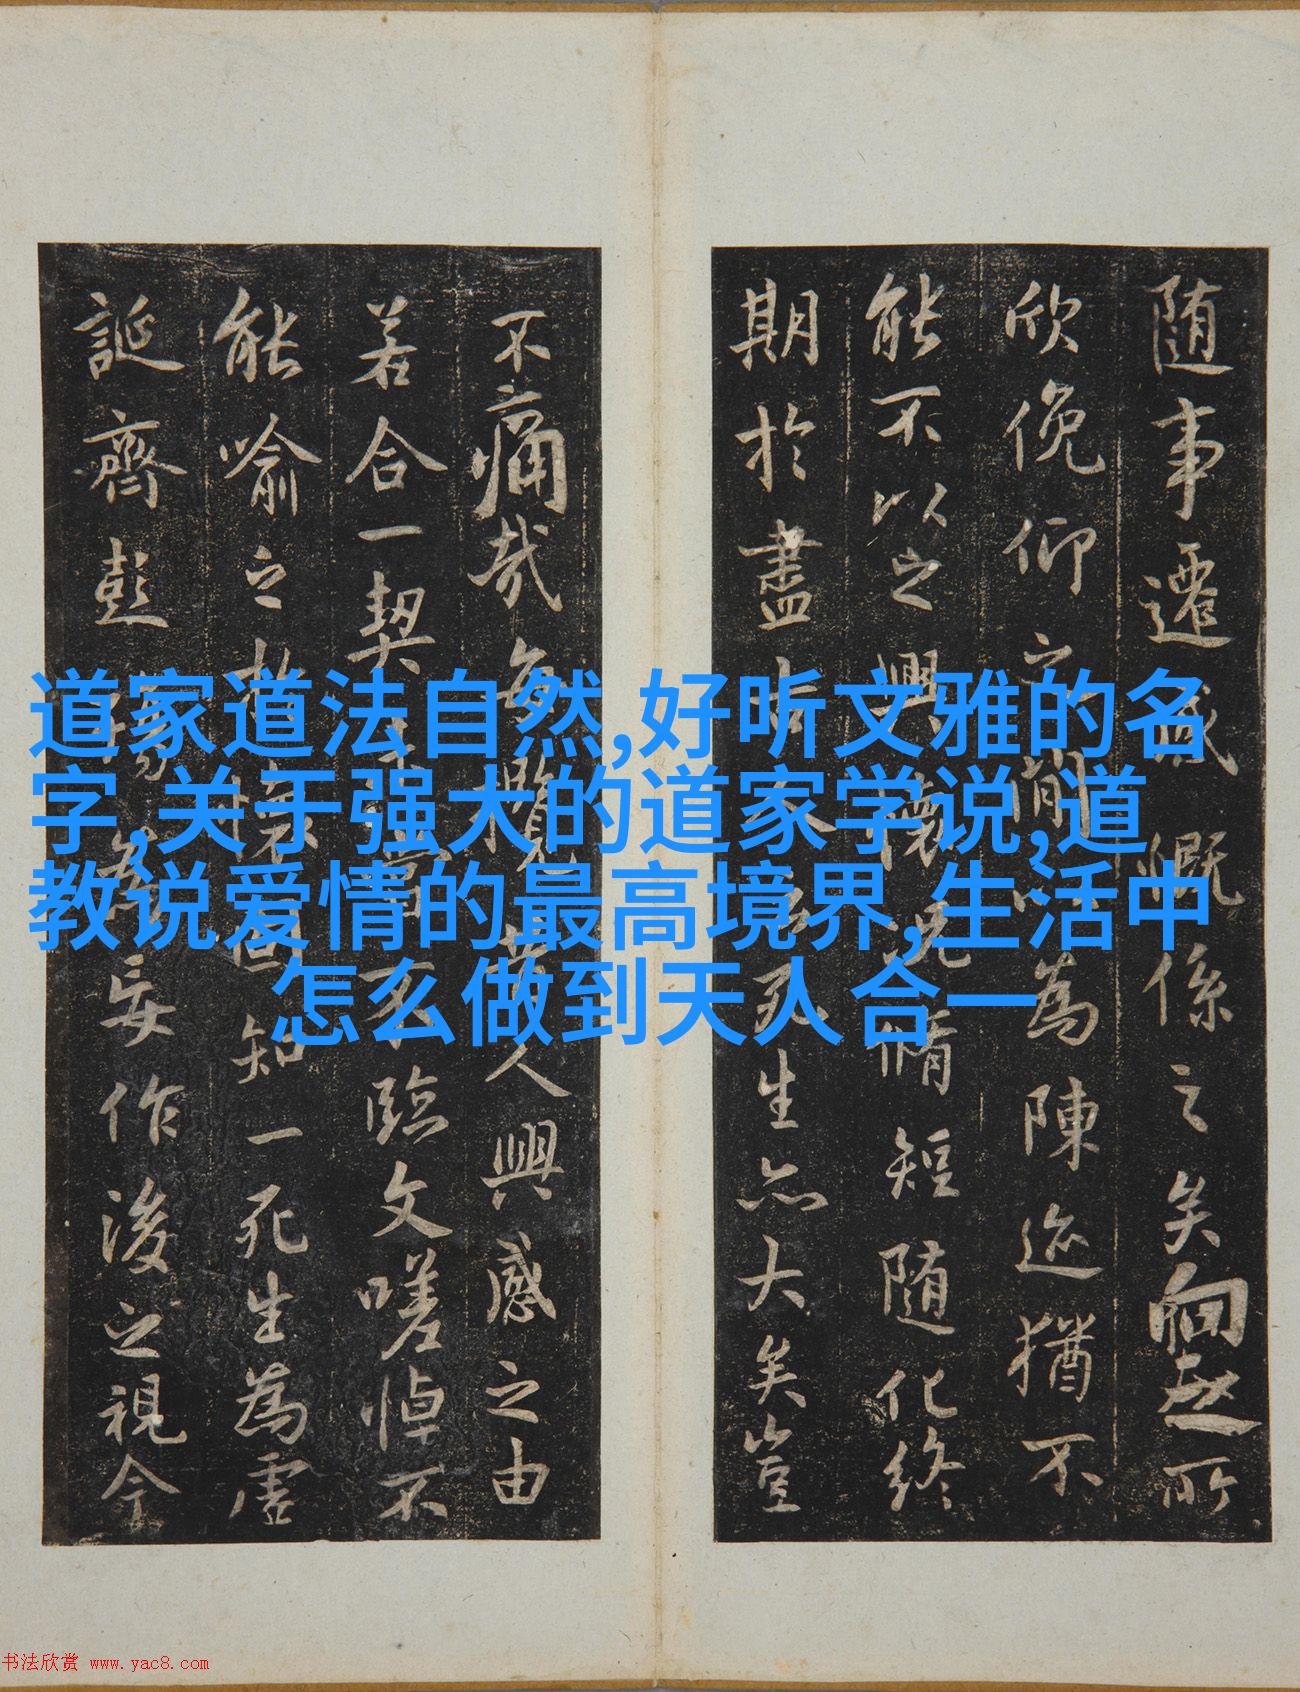 道家道法自然,好听文雅的名
字,关于强大的道家学说,道
教说爱情的最高境界,生活中
怎么做到天人合一
随事遷感慨係之矣向之所
欣俛仰之間以為陳迹猶不
能不以之興懷況脩短随化終
期於盡古人云死生亦大矣豈
不痛哉每攬昔人興感之由
若合一契未嘗不臨文嗟悼不
能喻之於懷固知一死生為虛
誕齊彭殤為妄作後之視今
书法欣赏 www.yac8.com